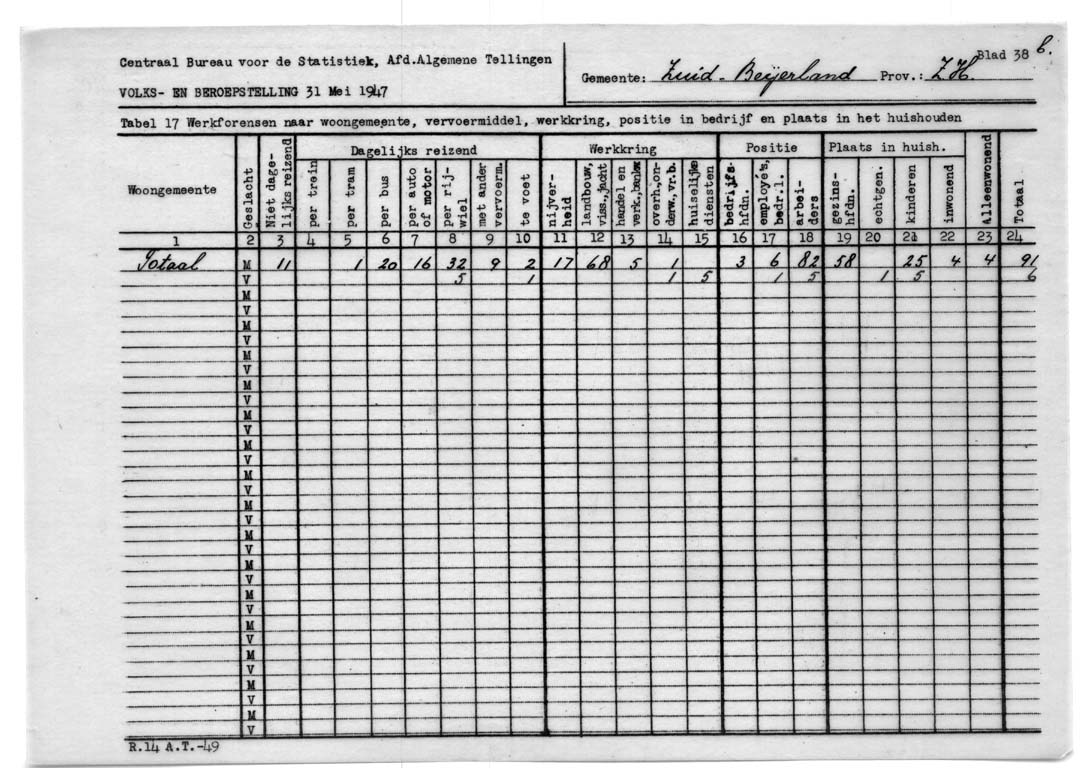 Centraal Bureau voor de Statistiek, Afd.Algemene Tellingen
VOLKS- EN BEROEPSTELLING 31 Mei 1947
Gemeente: Zuid-Beijerland Prov.: Z.H.
Blad 38 b.
Tabel 17 Werkforensen naar woongemeente, vervoermiddel, werkkring, positie in bedrijf en plaats in het huishouden
Woongemeente
Geslacht
Niet dagelijks reizend
Dagelijks reizend
per trein
per tram
per bus
per auto of motor
per rijwiel
met ander vervoerm.
te voet
Werkkring
nijverheid
landbouw, viss.,jacht
handel en verk.,banken
overh.,onderw.,vr.b.
huiselijke diensten
Positie
bedrijfshfdn.
employé's, bedr.l.
arbeiders
Plaats in huish.
gezinshfdn.
echtgen.
kinderen
inwonend
Alleenwonend
Totaal
1 2 3 4 5 6 7 8 9 10 11 12 13 14 15 16 17 18 19 20 21 22 23 24
Totaal M 11 1 20 16 32 9 2 17 68 5 1 3 6 82 58 25 4 4 91
V 5 1 1 5 1 5 1 5 6
M
V
M
V
M
V
M
V
M
V
M
V
M
V
M
V
M
V
M
V
M
V
M
V
M
V
M
V
M
V
R.14 A.T.-49